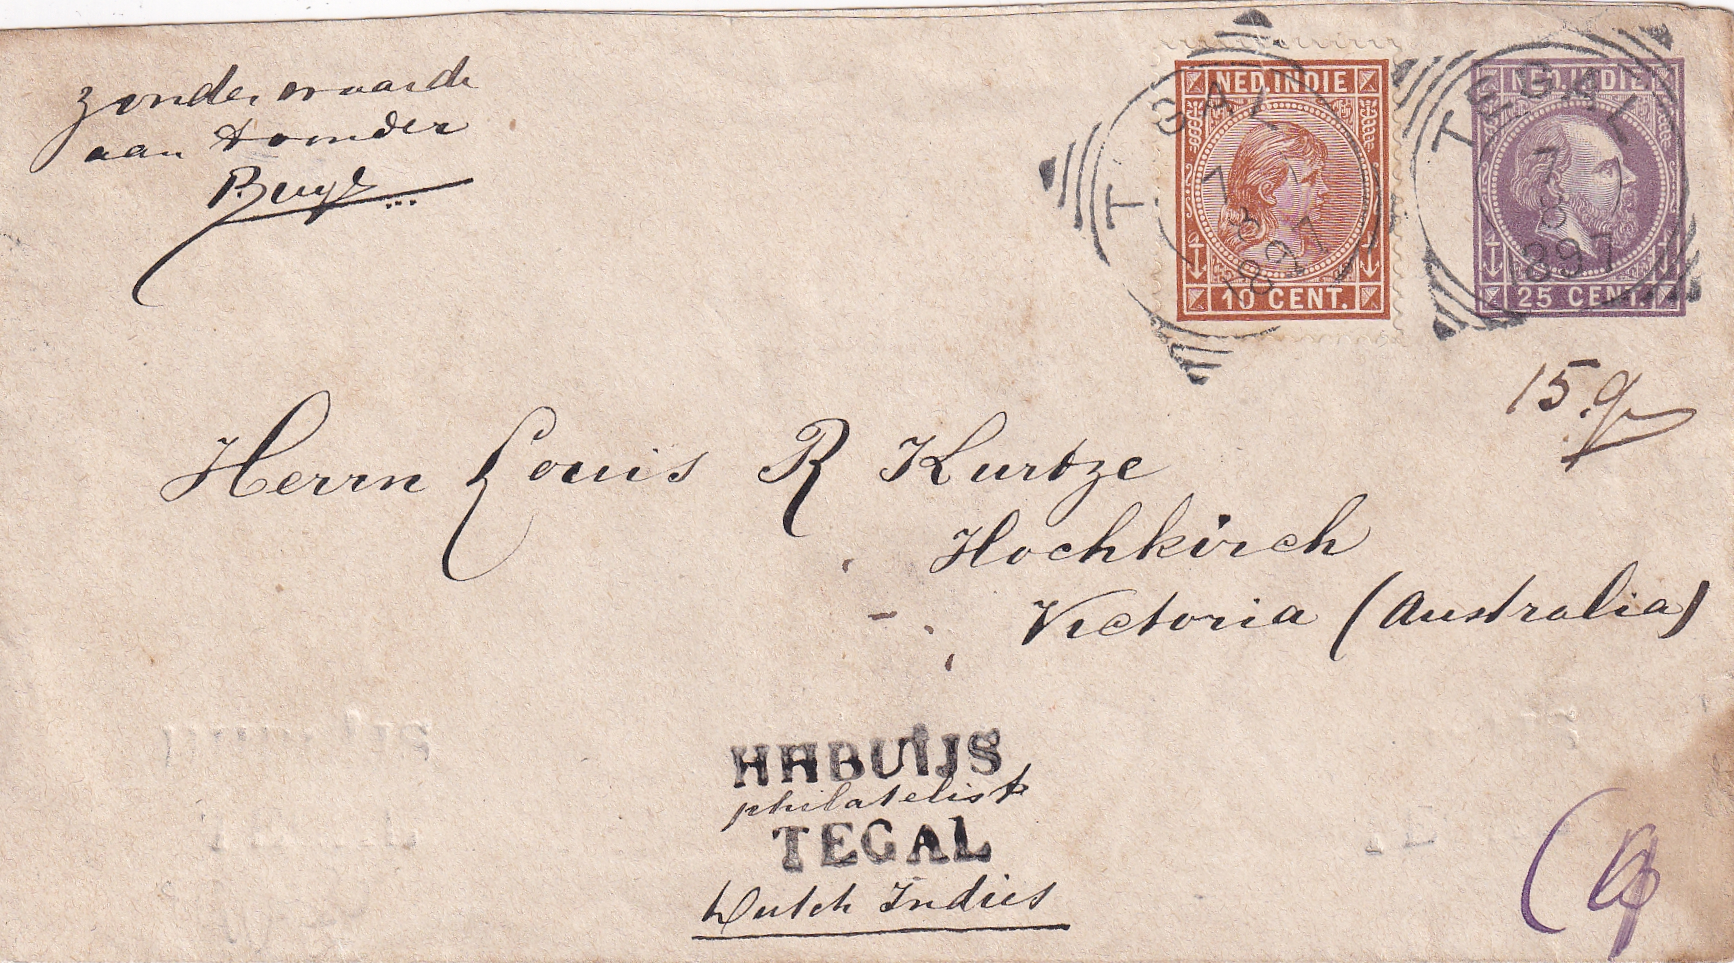 zonder waarde
aan
Buys
NED. INDIE
10 CENT.
TEGAL
7
8
1897
NED. INDIE
25 CENT.
TEGAL
7
8
1897
15 gr
Herrn Louis R Kurtze
Hochkirch
Victoria (Australia)
HHBUIJS
philatelist
TEGAL
Dutch Indies